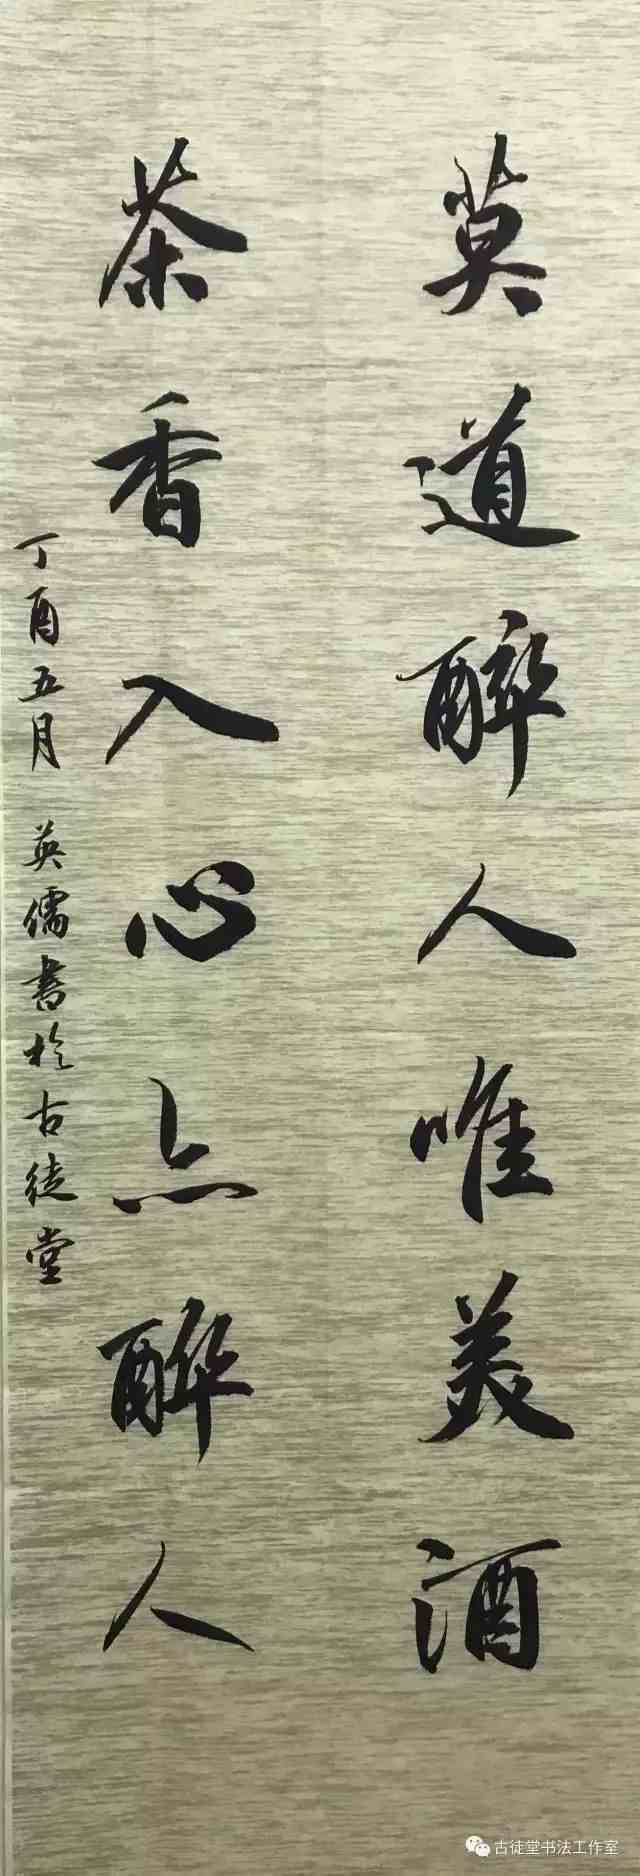 莫道醉人唯美酒
茶香入心亦醉人
丁酉五月 英儒書於古徒堂
古徒堂书法工作室